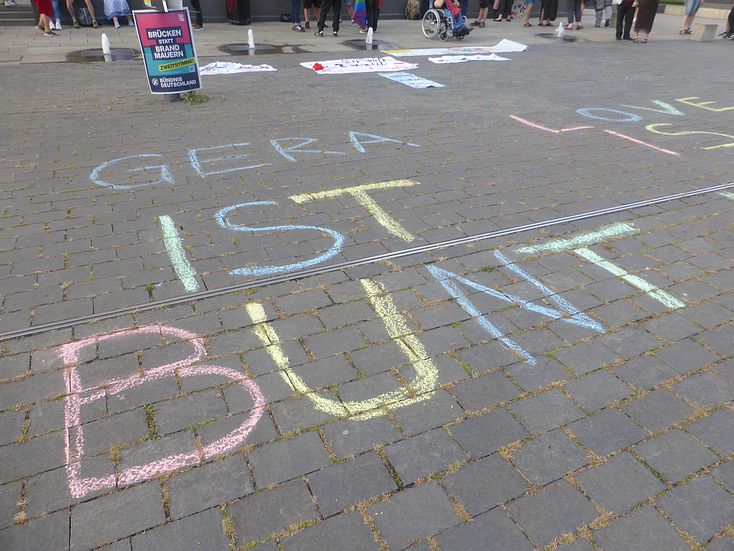 BRÜCKEN
STATT
BRAND
MAUERN
ZWEITSTIMME
BÜNDNIS
DEUTSCHLAND
GERA
IST
BUNT
LOVE
IS